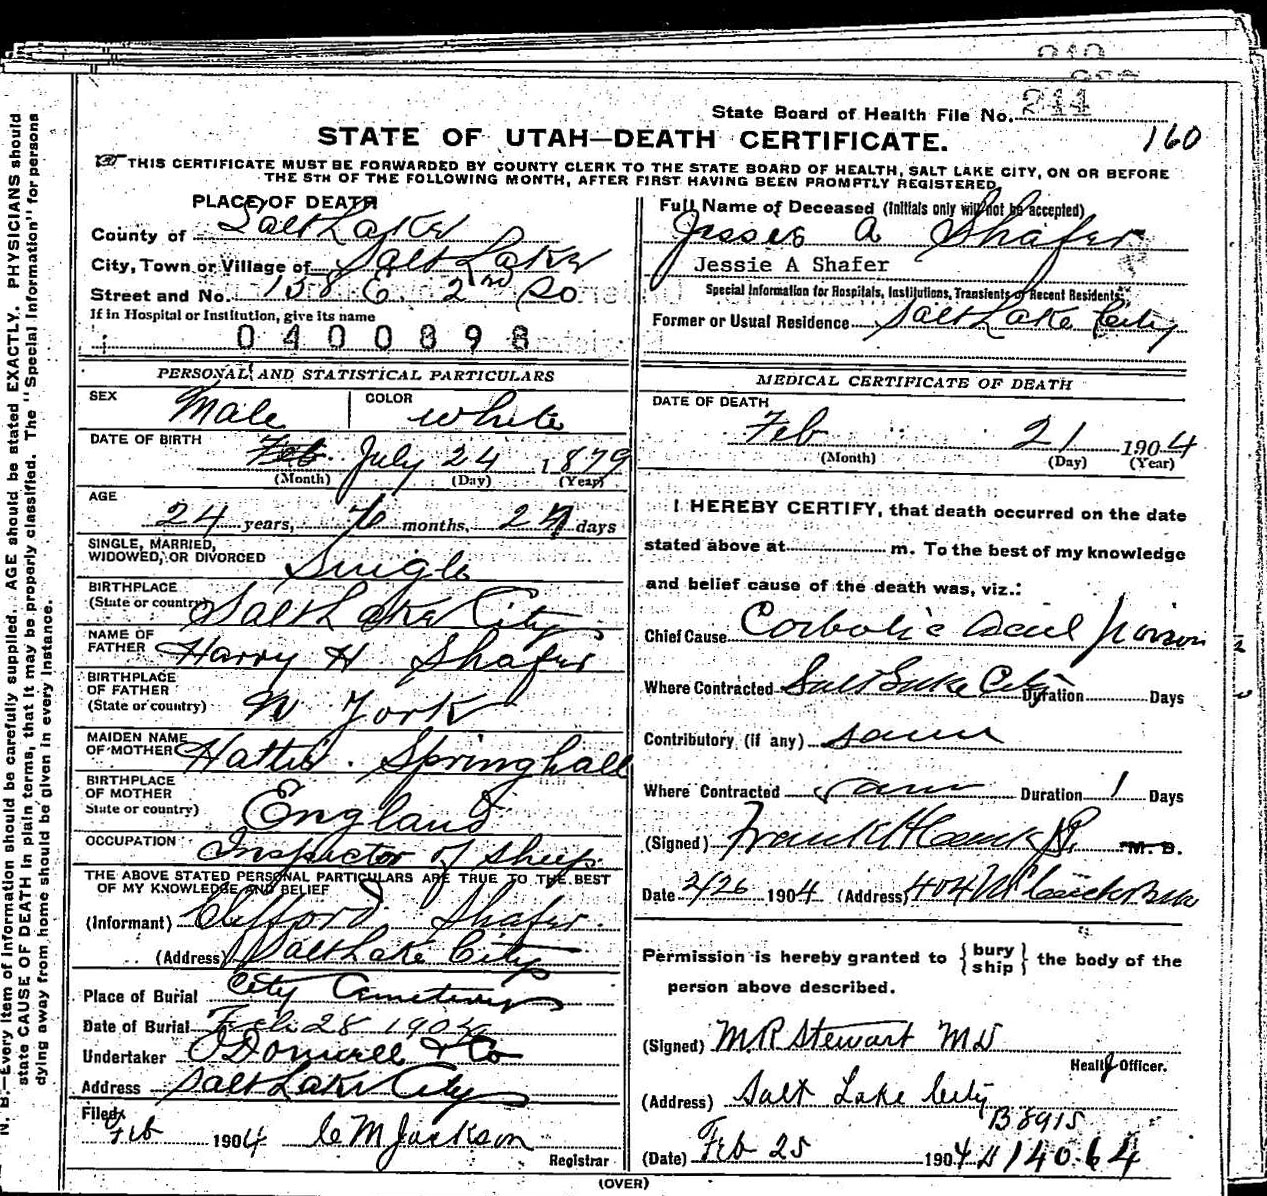 State Board of Health File No. 244
STATE OF UTAH—DEATH CERTIFICATE.
160
THIS CERTIFICATE MUST BE FORWARDED BY COUNTY CLERK TO THE STATE BOARD OF HEALTH, SALT LAKE CITY, ON OR BEFORE
THE 5TH OF THE FOLLOWING MONTH, AFTER FIRST HAVING BEEN PROMPTLY REGISTERED
PLACE OF DEATH
County of Salt Lake
City, Town or Village of Salt Lake
Street and No. 158 E. 2nd So
If in Hospital or Institution, give its name
0400898
Full Name of Deceased (Initials only will not be accepted)
Jesse A Shafer
Jessie A Shafer
Special Information for Hospitals, Institutions, Transients or Recent Residents.
Former or Usual Residence Salt Lake City
PERSONAL AND STATISTICAL PARTICULARS
SEX Male COLOR White
DATE OF BIRTH Feb July 24 1879
(Month) (Day) (Year)
AGE
24 years, months, days
SINGLE, MARRIED,
WIDOWED, OR DIVORCED Single
BIRTHPLACE
(State or country) Salt Lake City
NAME OF
FATHER Harry H Shafer
BIRTHPLACE
OF FATHER
(State or country) N York
MAIDEN NAME
OF MOTHER Hattie Springhall
BIRTHPLACE
OF MOTHER
State or country) England
OCCUPATION Inspector of Sheep
THE ABOVE STATED PERSONAL PARTICULARS ARE TRUE TO THE BEST
OF MY KNOWLEDGE AND BELIEF
(Informant) Clifford Shafer.
(Address) Salt Lake City
Place of Burial City Cemetery
Date of Burial Feb 28 1904
Undertaker O'Donnell & Co
Address Salt Lake City
Filed
Feb 1904 C M Jackson
Registrar
MEDICAL CERTIFICATE OF DEATH
DATE OF DEATH
Feb 21 1904
(Month) (Day) (Year)
I HEREBY CERTIFY, that death occurred on the date
stated above at m. To the best of my knowledge
and belief cause of the death was, viz.:
Chief Cause Carbolic Acid Poison
Where Contracted Salt Lake City Duration Days
Contributory (if any) same
Where Contracted same Duration 1 Days
(Signed) Frank H M. D.
Date 2/26 1904 (Address) 404
Permission is hereby granted to { bury
ship } the body of the
person above described.
(Signed) M.R Stewart MD
Health Officer.
(Address) Salt Lake City
B8915
(Date) Feb 25 1904 14064
(OVER)
N. B.—Every item of information should be carefully supplied. AGE should be stated EXACTLY. PHYSICIANS should
state CAUSE OF DEATH in plain terms, that it may be properly classified. The "Special Information" for persons
dying away from home should be given in every instance.